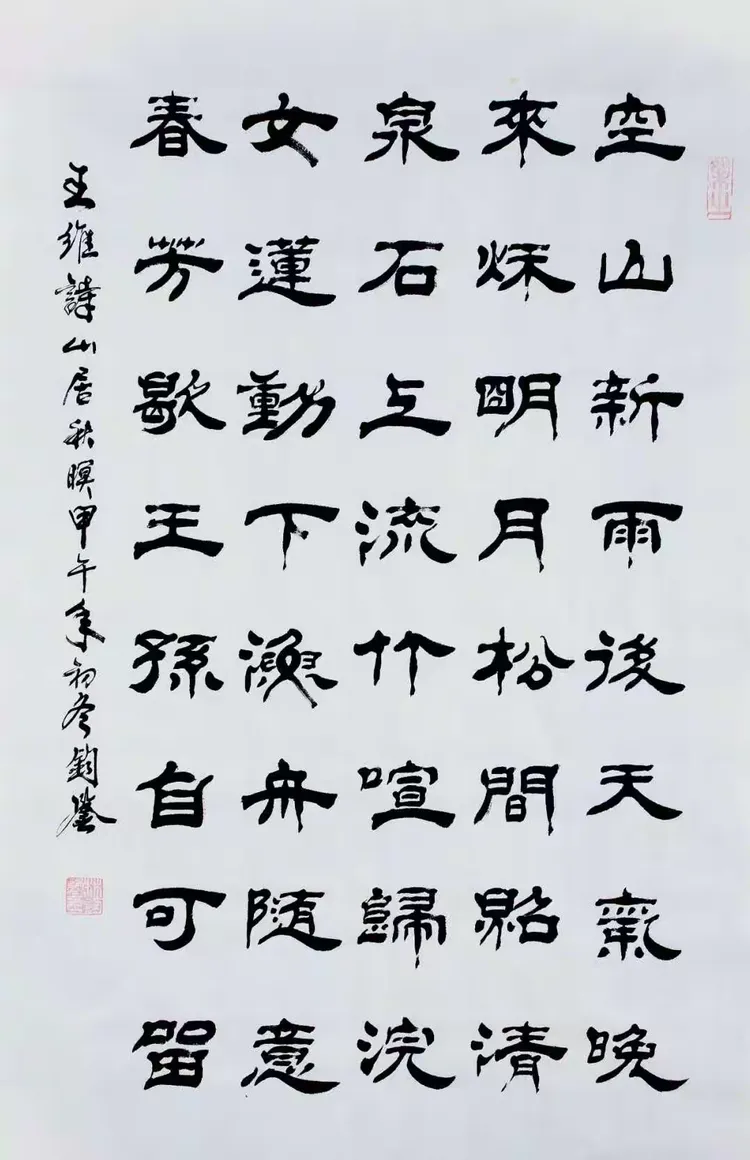 空山新雨後天氣晚
來秌朙月松間照清
泉石上流竹喧歸浣
女蓮動下漁舟随意
春芳歇王孫自可留
王維詩山居秋暝甲午年初冬鈞鑒